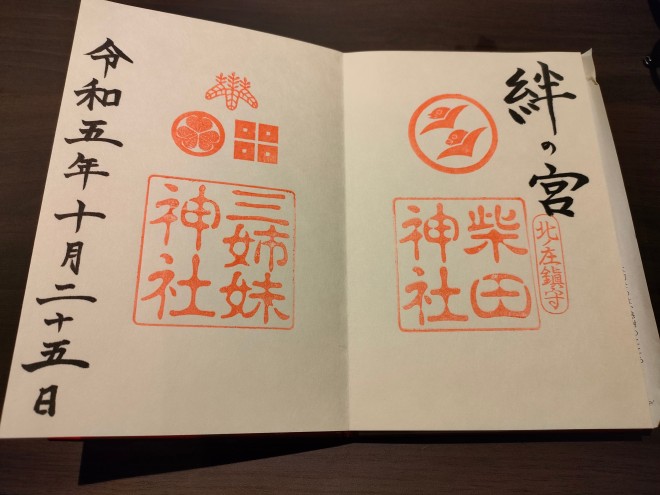 絆の宮
北ノ庄鎮守
柴田
神社
三姉妹
神社
令和五年十月二十五日